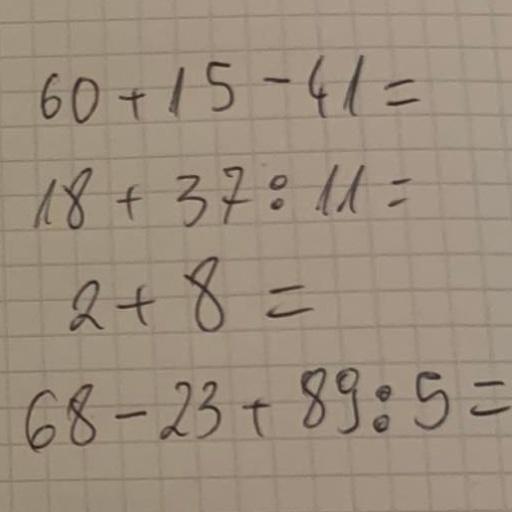 60 + 15 - 41 =
18 + 37 : 11 =
2 + 8 =
68 - 23 + 89 : 5 =